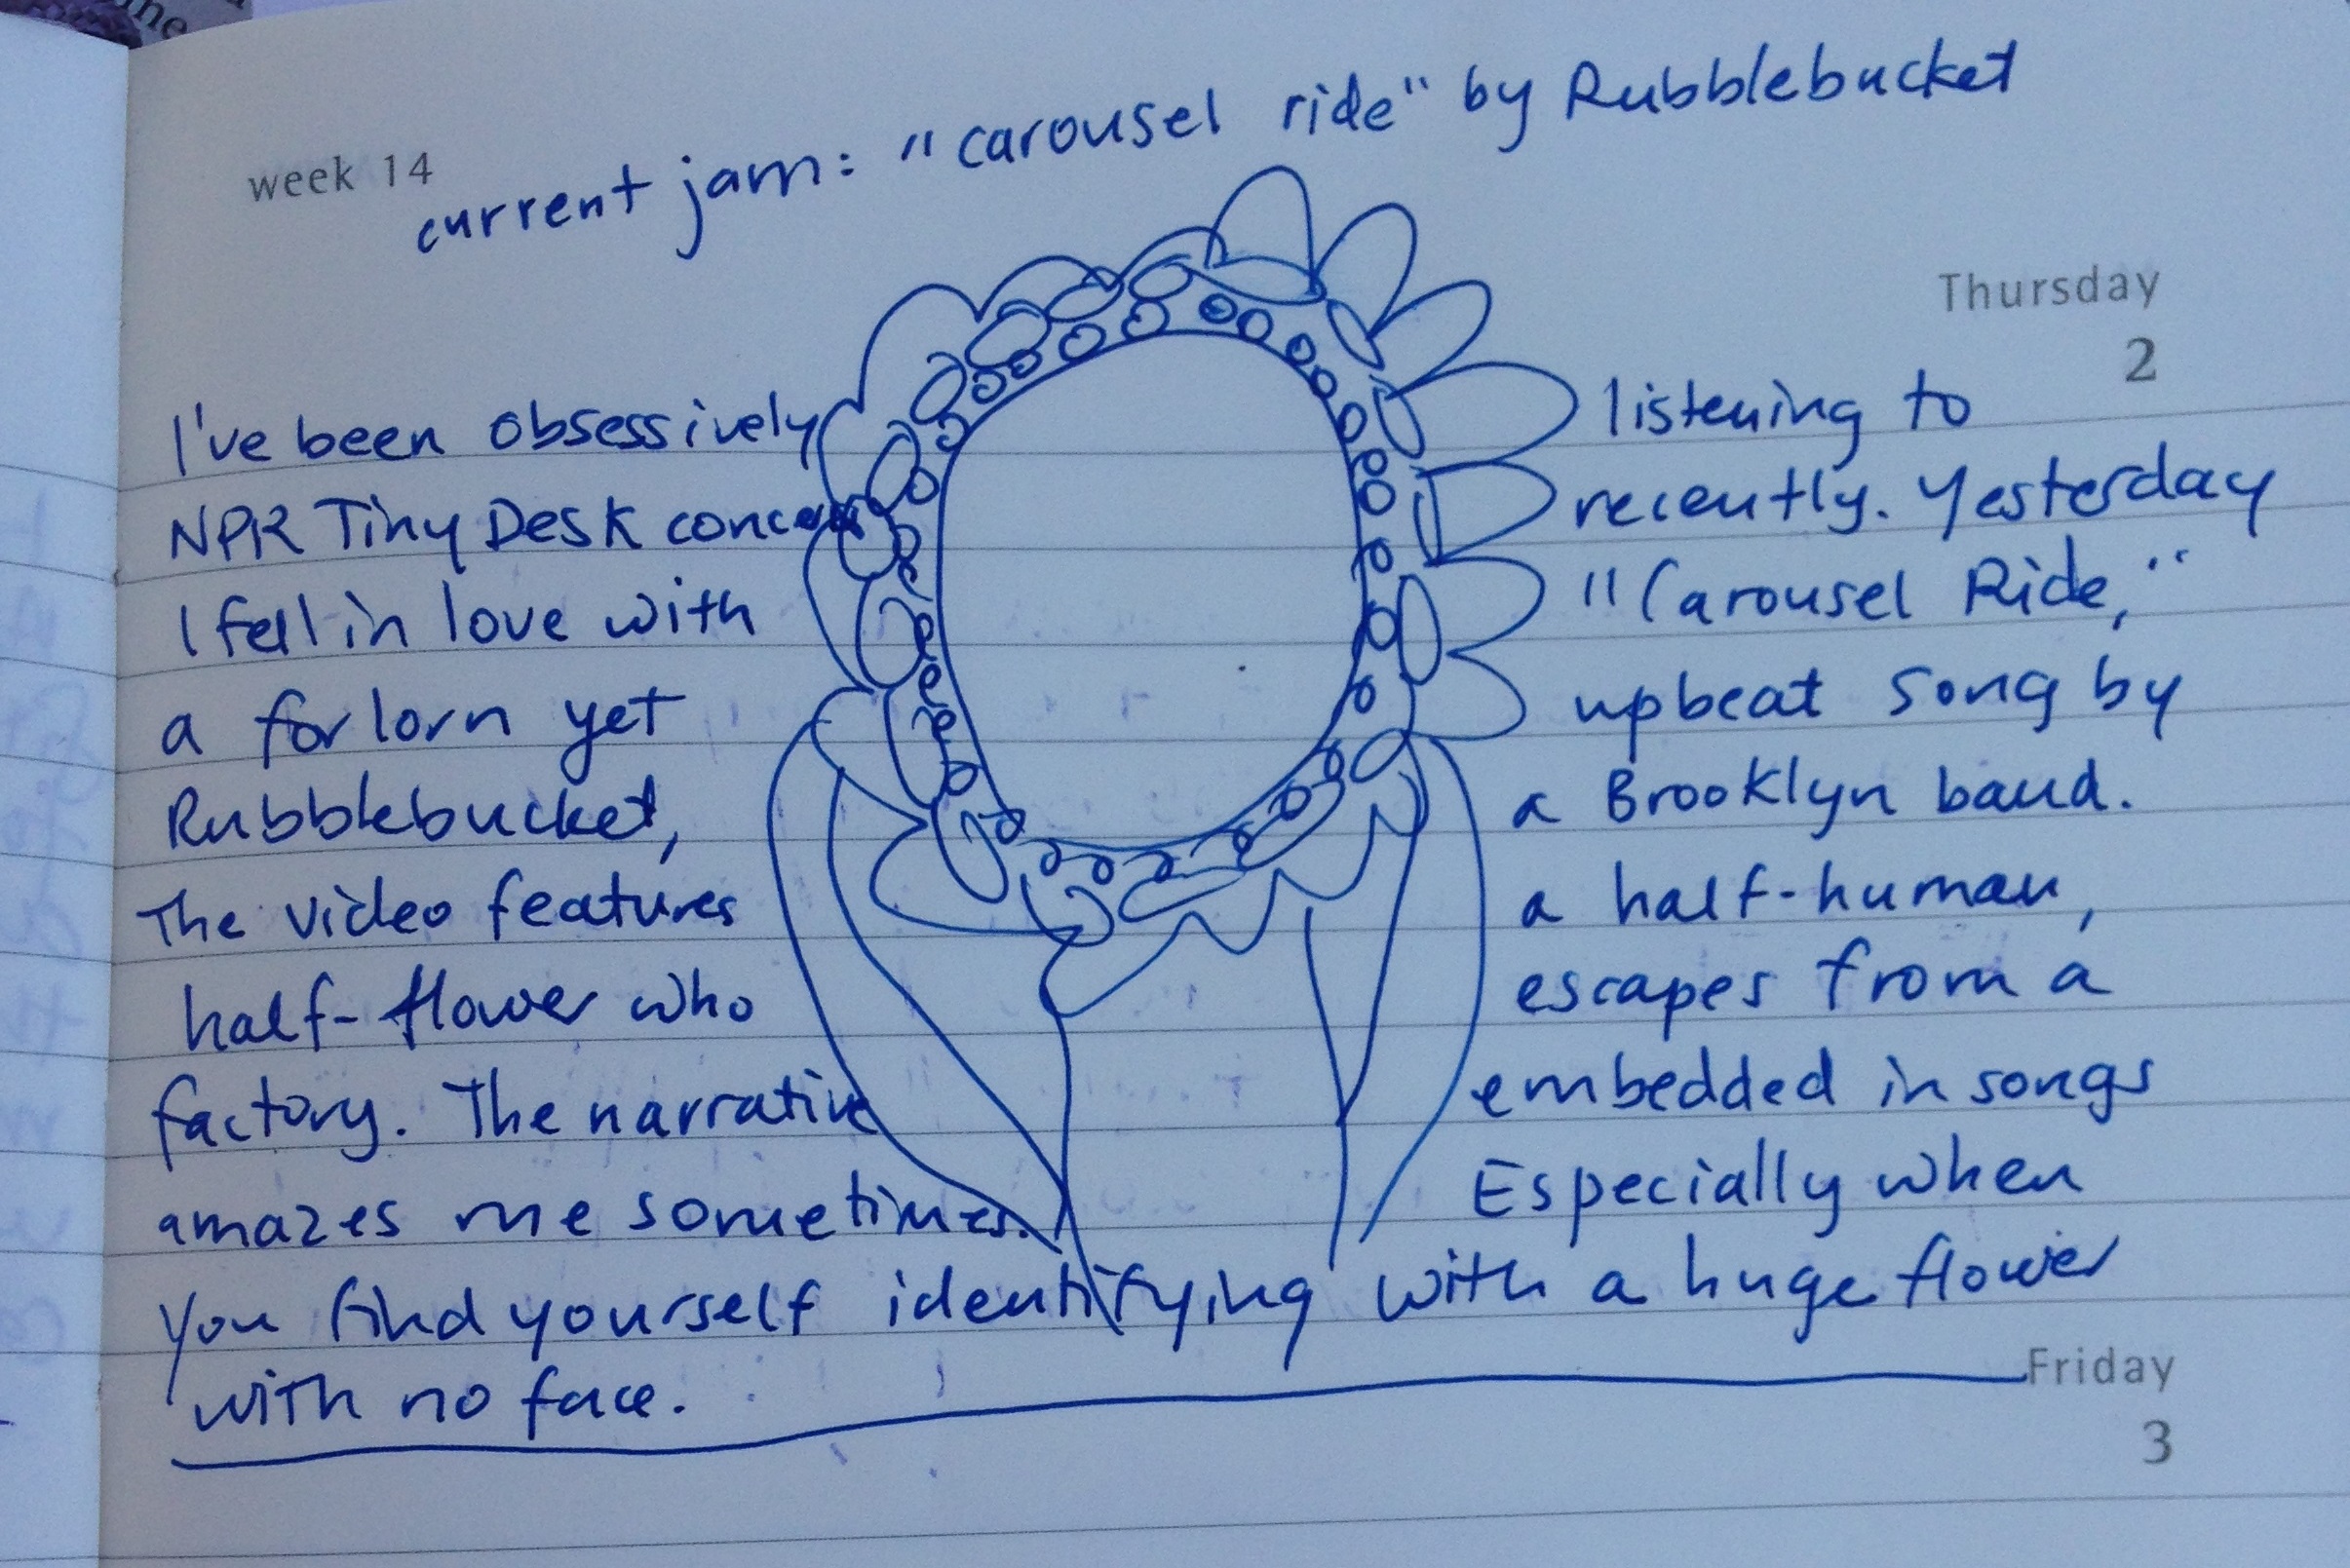 week 14
current jam: "carousel ride" by Rubblebucket
Thursday
2
I've been obsessively listening to
NPR Tiny Desk recently. Yesterday
I fell in love with "Carousel Ride,"
a forlorn yet upbeat song by
Rubblebucket, a Brooklyn band.
The video features a half-human,
half-flower who escapes from a
factory. The narrative embedded in songs
amazes me sometimes. Especially when
you find yourself identifying with a huge flower
with no face.
Friday
3